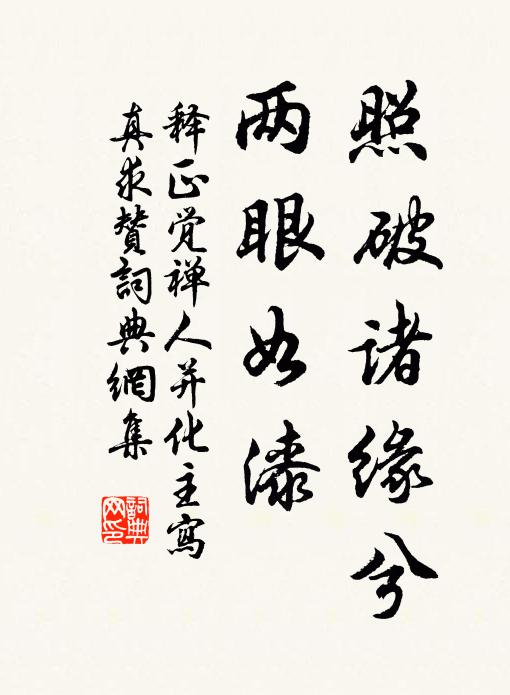 照破诸缘兮
两眼如漆
释正觉禅人并化主寫
真求赞詞典網集
詞典网印